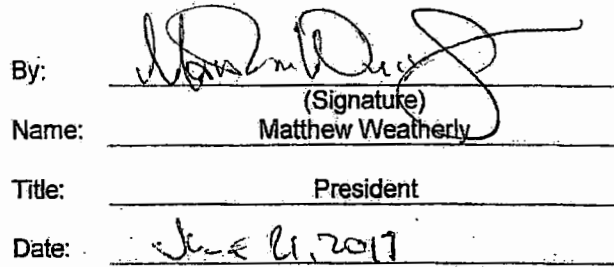 By:
(Signature)
Name: Matthew Weatherly
Title: President
Date: June 21, 2017